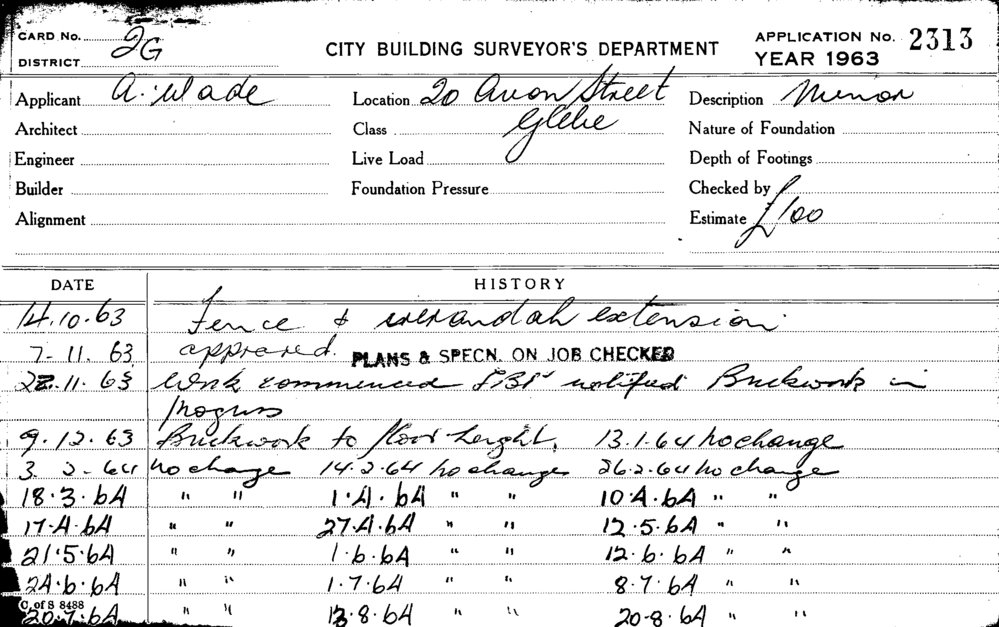 CARD No. 2G
DISTRICT
CITY BUILDING SURVEYOR'S DEPARTMENT
APPLICATION No. 2313
YEAR 1963
Applicant A. Wade
Location 20 Avon Street
Glebe
Description Minor
Architect
Class
Nature of Foundation
Engineer
Live Load
Depth of Footings
Builder
Foundation Pressure
Checked by
Alignment
Estimate £100
DATE HISTORY
14.10.63 Fence & verandah extension.
7-11.63 approved. PLANS & SPECN. ON JOB CHECKED
22.11.63 Work commenced notified Brickwork in
progress
9.12.63 Brickwork to floor height. 13.1.64 no change
3.2-64 no change 14.2.64 no change 26.2.64 no change
18.3.64 " " 1.4.64 " " 10.4.64 " "
17.4.64 " " 27.4.64 " " 12.5.64 " "
21.5.64 " " 1.6.64 " " 12.6.64 " "
24.6.64 " " 1.7.64 " " 8.7.64 " "
C. of S 8488
20.7.64 " " 13.8.64 " " 20-8.64 " "